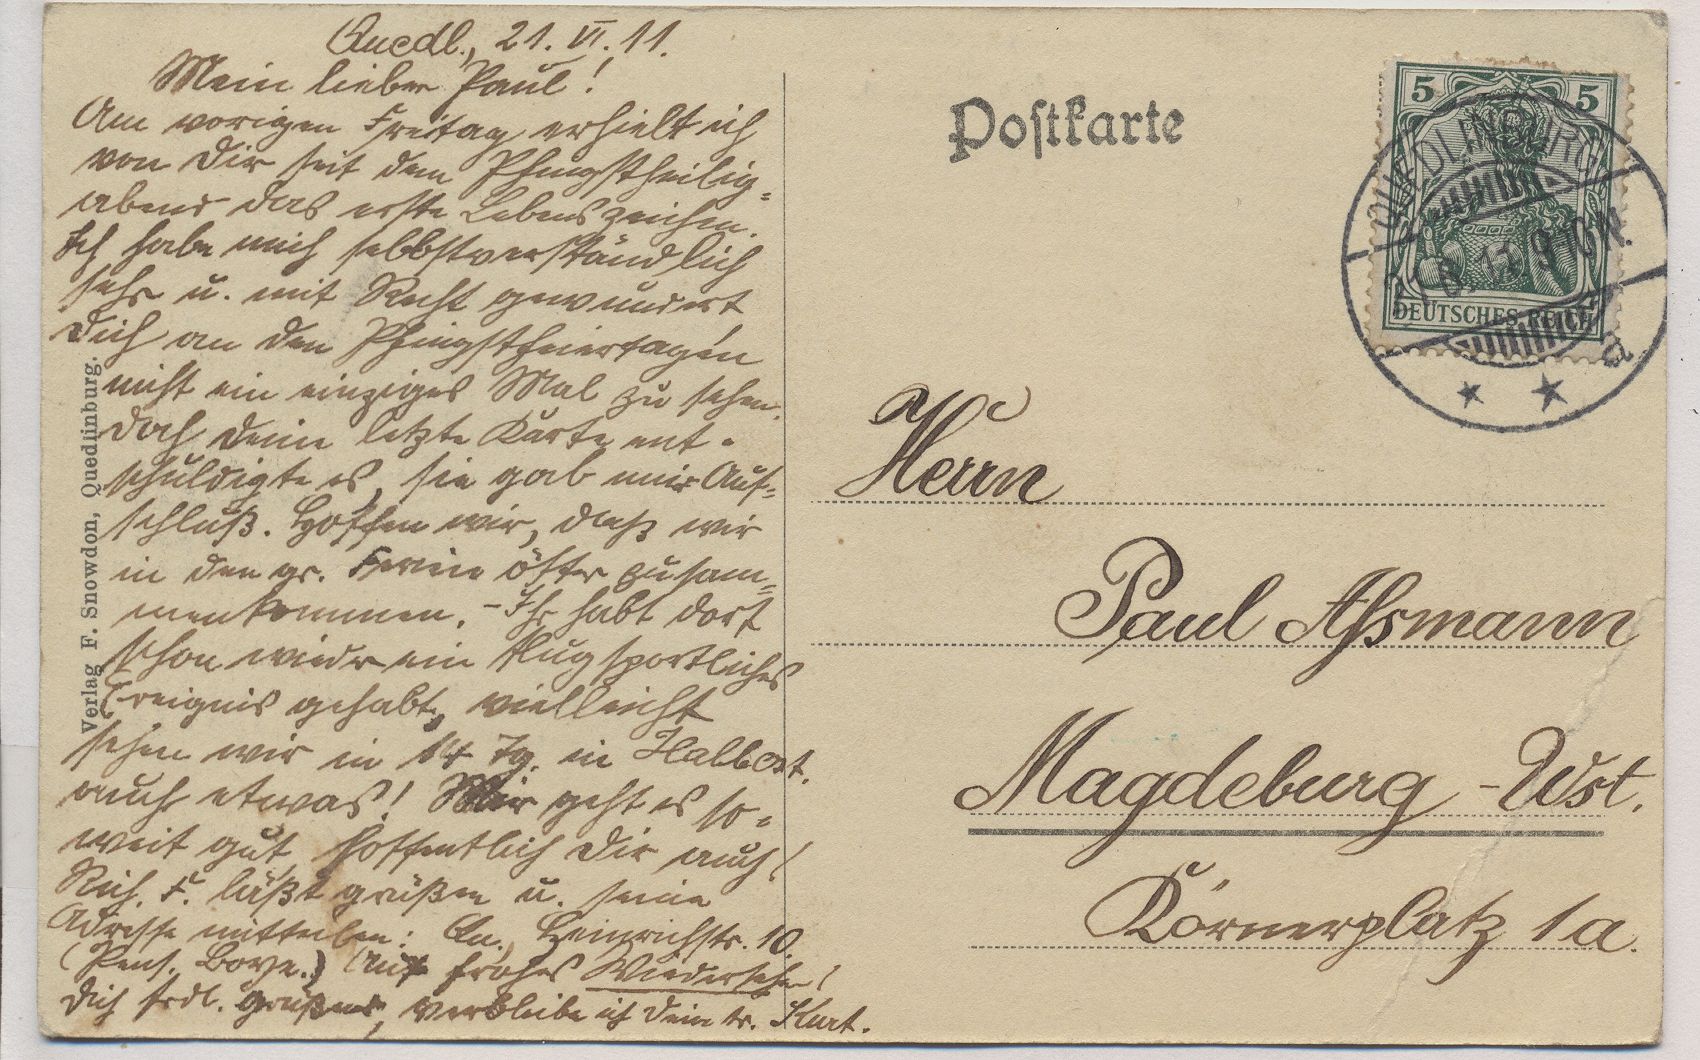 Quedl., 21. VI. 11.
Mein lieber Paul!
Am vorigen Freitag erhielt ich
von Dir seit dem Pfingstheilig-
abend das erste Lebenszeichen.
Ich habe mich selbstverständlich
sehr u. mit Recht gewundert
Dich an den Pfingstfeiertagen
nicht ein einziges Mal zu sehen.
Doch Deine letzte Karte ent-
schuldigte es, sie gab mir Auf-
schluß. Hoffen wir, daß wir
in den gr. Ferien öfter zusam-
menkommen. - Ihr habt dort
schon wieder ein flugsportliches
Ereignis gehabt, vielleicht
sehen wir in 14 Tg. in Halbst.
auch etwas! Mir geht es so-
weit gut, hoffentlich Dir auch!
Rich. F. läßt grüßen u. seine
Adresse mitteilen: Qu., Heinrichstr. 10.
(Pens. Boye.) Auf frohes Wiedersehen!
Dich frdl. grüßend, verbleibe ich Dein tr. Kurt.
Verlag F. Snowdon, Quedlinburg.
Postkarte
5 5
DEUTSCHES REICH
QUEDLINBURG
21.6.11 9-10 N.
a
Herrn
Paul Assmann
Magdeburg - Wst.
Körnerplatz 1a.